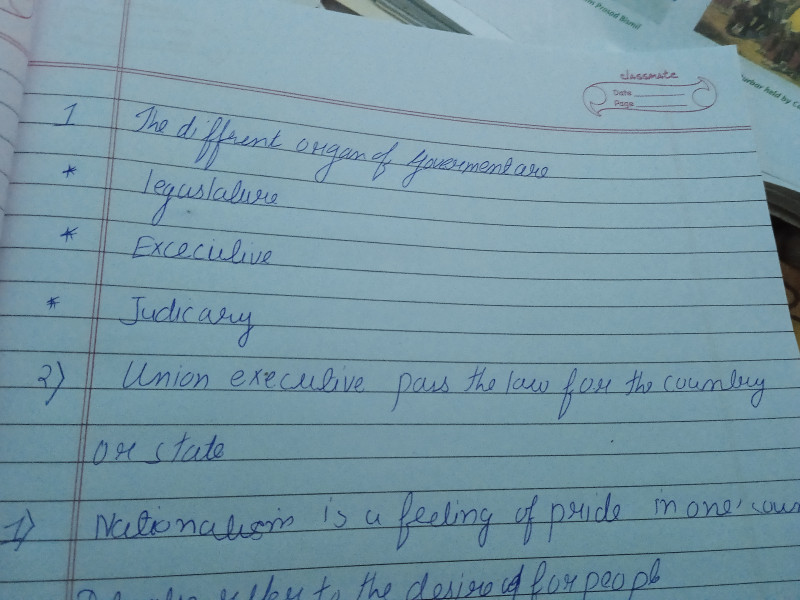 ran Prasad Bismil
urbar held by Co
classmate
Date
Page
1 The diffrent organ of Goverment are
* legaslature
* Excecutive
* Judicary
2) Union executive pass the law for the country
or state
1) Nationalism is a feeling of pride in one' coun
refer to the desire of for peopl